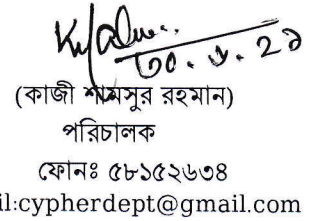 ৩০.৬.২১
(কাজী শামসুর রহমান)
পরিচালক
ফোনঃ ৫৮১৫২৬৩৪
il:cypherdept@gmail.com